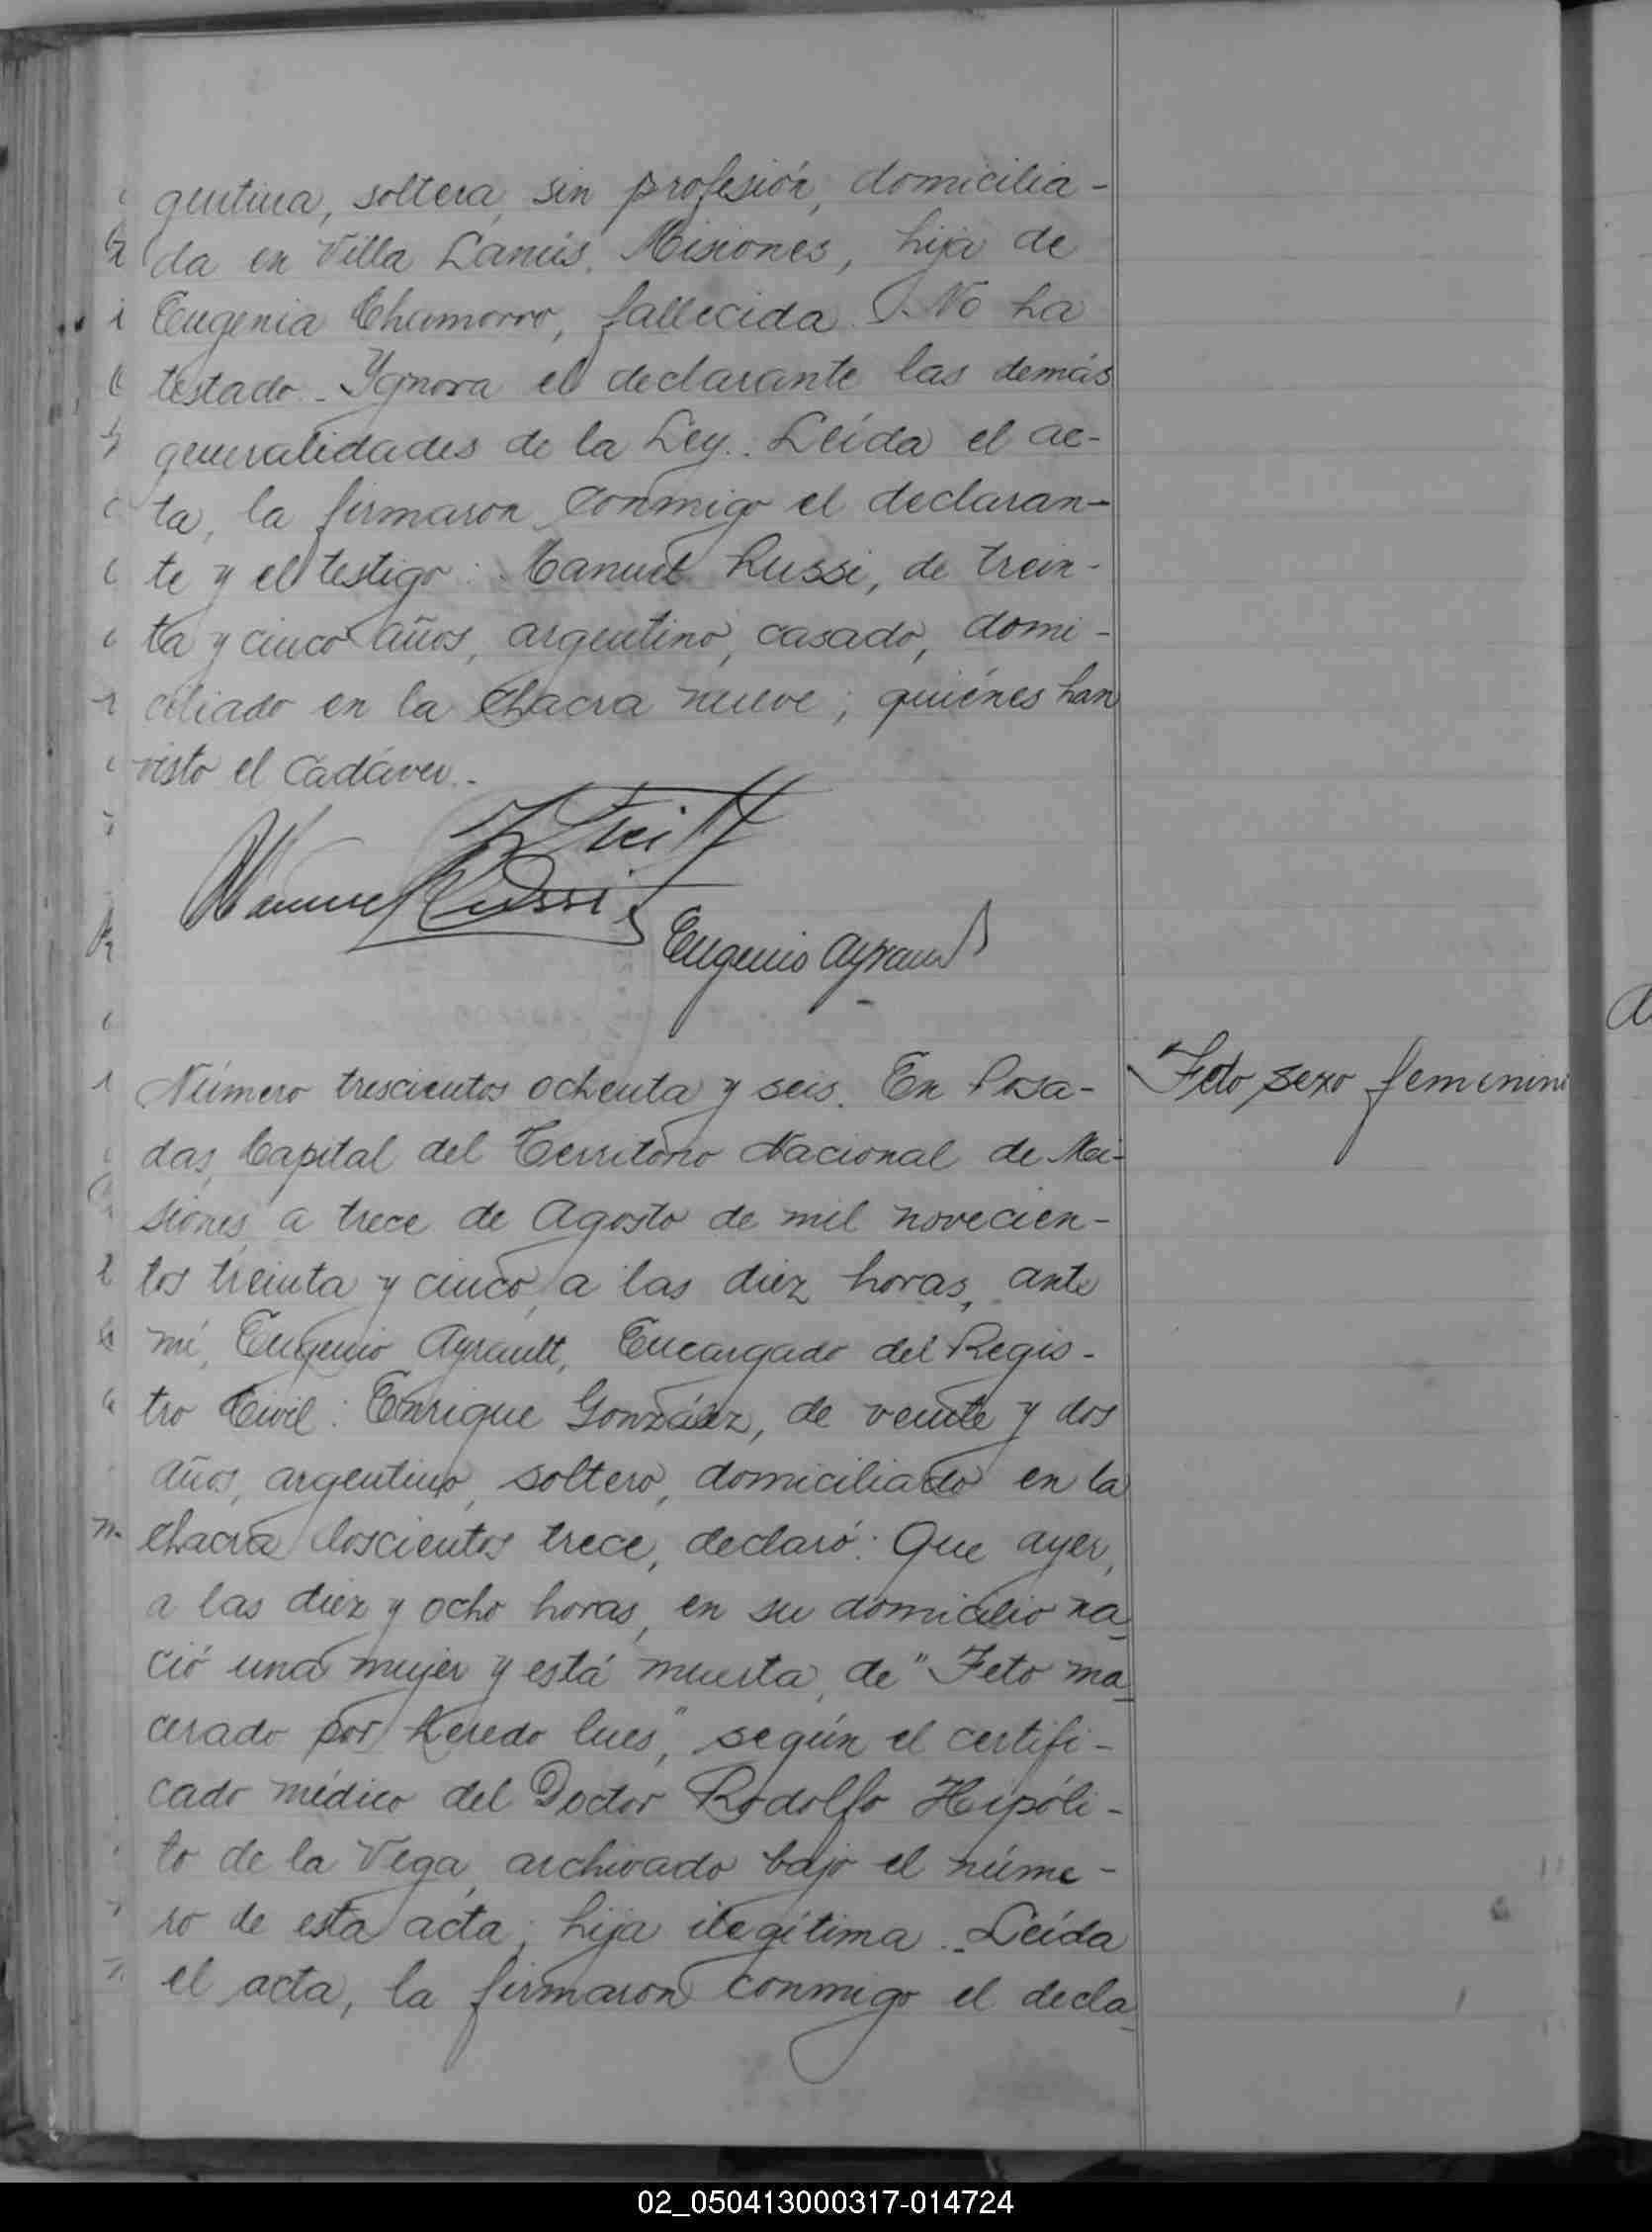 gentina, soltera, sin profesión, domicilia-
da en Villa Lanús, Misiones, hija de
Eugenia Chamorro, fallecida. No ha
testado.- Ygnora el declarante las demás
generalidades de la Ley.- Leída el ac-
ta, la firmaron conmigo el declaran-
te y el testigo: Manuel Russi, de trein-
ta y cinco años, argentino, casado, domi-
ciliado en la chacra nueve; quiénes han
visto el cadáver.-
Manuel Russi
Eugenio Ayrault
Número trescientos ochenta y seis. En Posa-
das, Capital del Territorio Nacional de Mi-
siones, a trece de Agosto de mil novecien-
tos treinta y cinco, a las diez horas, ante
mí, Eugenio Ayrault, Encargado del Regis-
tro Civil: Enrique González, de veinte y dos
años, argentino, soltero, domiciliado en la
chacra doscientos trece, declaró: Que ayer,
a las diez y ocho horas, en su domicilio na-
ció una mujer y está muerta, de "Feto ma-
cerado por heredo lues", según el certifi-
cado médico del Doctor Rodolfo Hipóli-
to de la Vega, archivado bajo el núme-
ro de esta acta; hija ilegítima.- Leída
el acta, la firmaron conmigo el decla-
Feto sexo femenino
02_050413000317-014724